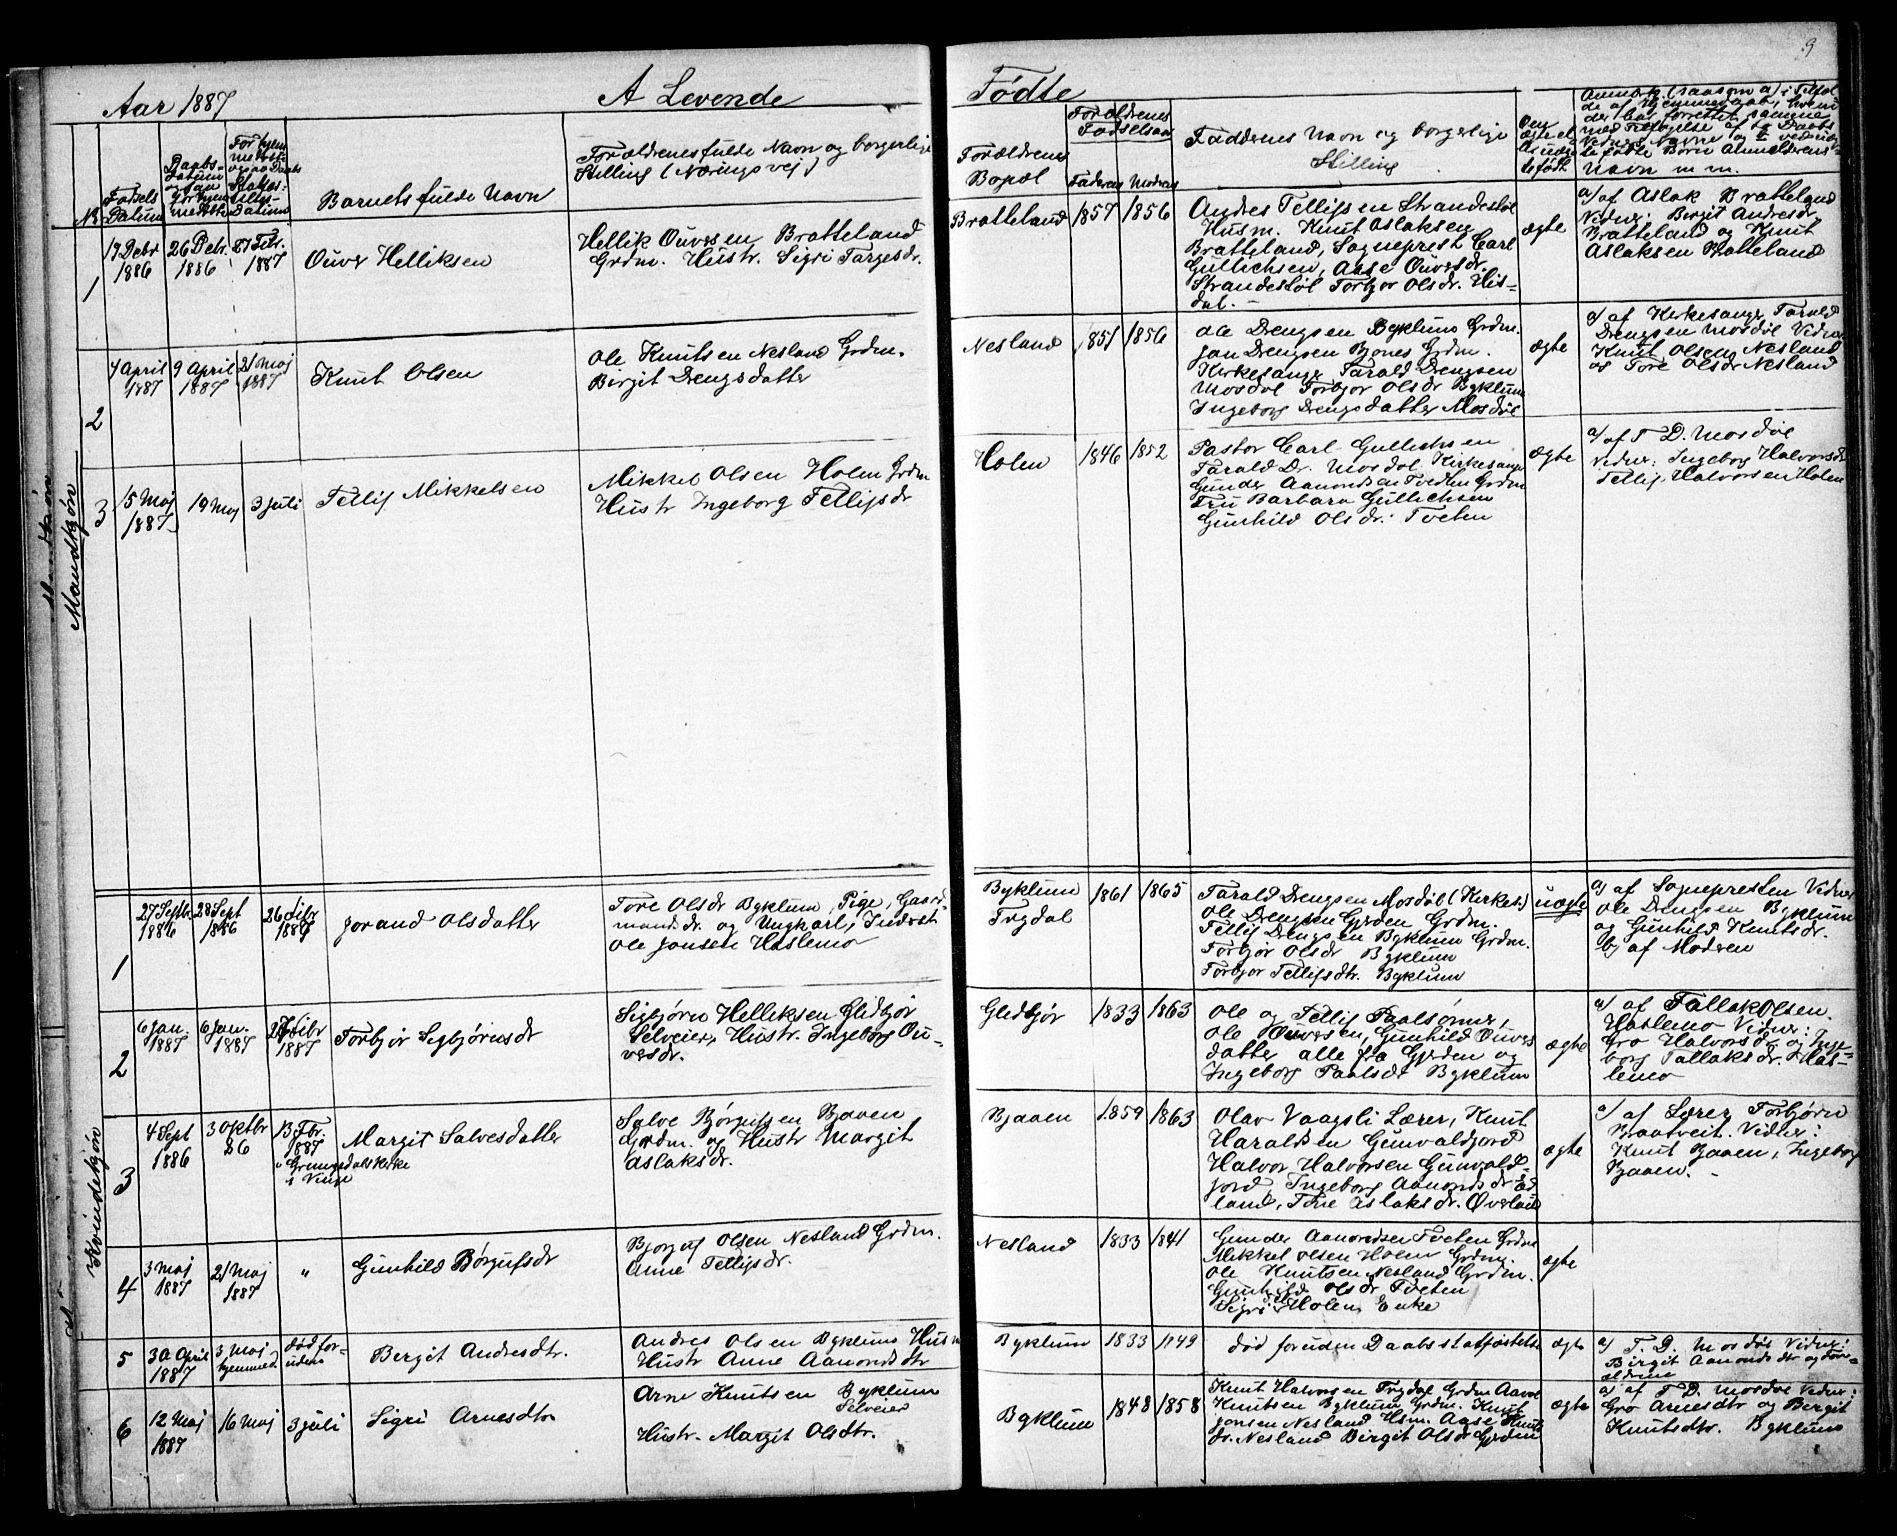 9
Aar 1887
A Levende
Fødte
No
Fødsels
Datum
Daabs-
Datum
Stads-
Datum
Barnets fulde Navn
Forældrenes fulde Navn og borgerlige
Stilling (Næringsvej)
Forældrenes
Bopæl
Forældrenes
Fødselsaar
Faderens Modrens
Faddernes Navn og borgerlige
Stilling
Mandkjøn
1
17 Debr
1886
26 Debr.
1886
Febr.
1887
Ouver Helliksen
Hellik Ouversen Bratteland
Grdm. Hustr. Sigri Targesdr.
Bratteland
1857
1856
Andres Tellifsen Strandestøl
Husm. Knut Aslaksen
Bratteland, Sogneprest Carl
Gullichsen, Aase Ouversdr.
Strandestøl Torbjor Olsdr. His-
dal. -
ægte
a) af Aslak Bratteland
Vidner: Birgit Andresdr.
Bratteland og Knut
Aslaksen Bratteland
2
4 April
1887
9 April
1887
21 Maj
1887
Knut Olsen
Ole Knutsen Nesland Grdm.
Birgit Drengsdatter
Nesland
1851
1856
Ole Drengsen Byklum Grdm.
Jan Drengsen Bjones Grdm.
Kirkesanger Tarald Drengsen
Mosdøl Torbjor Olsdr Byklum
Ingeborg Drengsdatter Mosdøl
ægte
a) af Kirkesanger Tarald
Drengsen Mosdøl Vidner
Knut Olsen Nesland
og Tore Olsdr Nesland
3
15 Maj
1887
19 Maj
3 Juli
Tellif Mikkelsen
Mikkel Olsen Holen Grdm
Hustr Ingeborg Tellifsdr
Holen
1846
1852
Pastor Carl Gullichsen
Tarald Dr. Mosdøl Kirkesanger
Gunder Aanondsen Tveten Grdm
Fru Barbara Gullichsen
Gunhild Olsdr. Tveten
ægte
a) af T. D. Mosdøl
Vidner: Ingeborg Halvorsdr
Tellif Halvorsen Holen
Kvindekjøn
1
27 Septbr
1886
28 Sept
1886
26 Febr
1887
Jorand Olsdatter
Tore Olsdr Byklum, Pige, Gaard-
mandsdr. og Ungkarl, Inderst
Ole Jonsen Haslemo
Byklum
Trydal
1861
1865
Tarald Drengsen Mosdøl (Kirkes.)
Ole Drengsen Gjerden Grdm.
Tellif Drengsen Byklum Grdm.
Torbjor Olsdr Byklum
Torbjor Tellifsdtr. Byklum
uægte
a) af Sognepresten Vidner
Ole Drengsen Byklum
og Gunhild Knutsdr.
b) af Modren
2
6 Jan.
1887
6 Jan.
1887
26 Febr
1887
Torbjør Sigbjørnsdr
Sigbjørn Helliksen Gledbjør
Selveier, Hustr. Ingeborg Ou-
versdr.
Gledbjør
1833
1863
Ole og Tellif Paalsønner,
Ole Ouversen, Gunhild Ouvers
datter alle fra Gjerden og
Ingeborg Paalsdr Byklum
ægte
a) af Tallak Olsen.
Haslemo Vidner:
Gro Halvorsdr og Inge-
borg Tallaksdr. Has-
lemo
3
4 Sept
1886
3 Oktbr
86
13 Fbr.
1887
i Grungedalskirke
i Vinje
Margit Salvesdatter
Salve Børgufsen Bjaaen
Grdm. og Hustr Margit
Aslaksdr.
Bjaaen
1859
1863
Olav Vaagsli Lærer, Knut
Haraldsen Gunvaldjord
Halvor Halvorsen Gunvald-
jord Ingeborg Aanondsdr Ed-
land, Tone Aslaksdr. Øverland
ægte
a) af Lærer Torbjørn
Braatveit. Vidner:
Knut Bjaaen, Ingeborg
Bjaaen. -
4
3 Maj
1887
21 Maj
1887
"
Gunhild Børgufsdr
Bjorguf Olsen Nesland Grdm.
Anne Tellifsdr.
Nesland
1833
1841
Gunder Aanondsen Tveten Grdm
Mikkel Olsen Holen Grdm.
Ole Knutsen Nesland Grdm.
Gunhild Olsdr Tveten
Sigri Holen, Enke
ægte
5
30 April
1887
3 Maj
hjemmed.
død for-
uden
Bergit Andresdtr.
Andres Olsen Byklum Husm
Hustr Anne Aanondsdtr
Byklum
1833
1849
død foruden Daabsstadfæstelse
ægte
a) T. D. Mosdøl Vidner:
Birgit Aanondsdtr og For-
ældrene
6
12 Maj
1887
16 Maj
3 Juli
Sigri Arnesdtr
Arne Knutsen Byklum
Selveier
Hustr. Margit Olsdtr.
Byklum
1848
1858
Knut Halvorsen Trydal Grdm Aavol
Knutsen Byklum Grdm. Knut
Jonsen Nesland Hsm. Aase Knuts
dr. Nesland Birgit Olsdr Gjerden
ægte
a) af T. D. Mosdøl Vidner:
Gro Arnesdtr og Bergit
Knutsdtr. Byklum